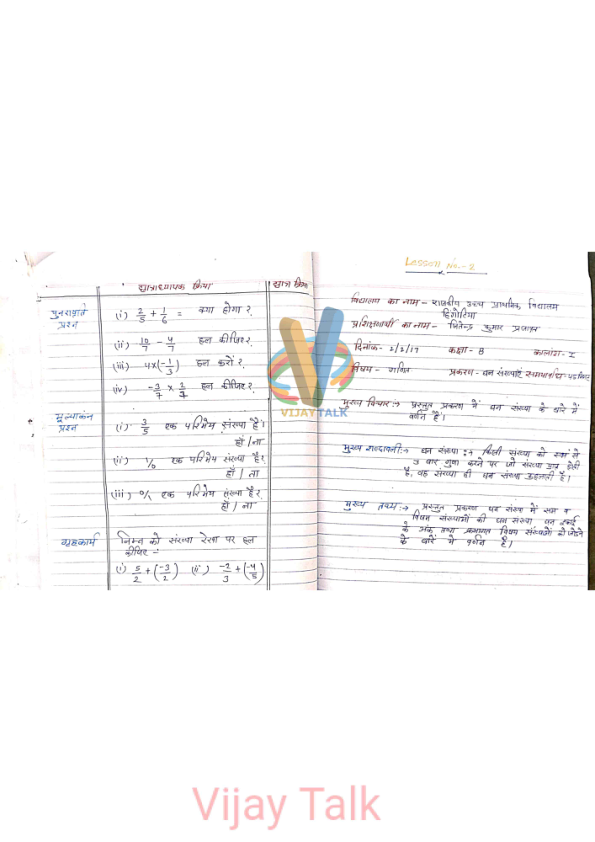 छात्राध्यापक क्रिया
छात्र क्रिया
पुनरावृति प्रश्न
(i) 2/5 + 1/6 = क्या होगा ?
(ii) 10/7 - 4/7 हल कीजिए ?
(iii) 4×(-1/3) हल करो ?
(iv) हल कीजिए ?
मूल्यांकन प्रश्न
(i) 3/5 एक परिमेय संख्या है।
हाँ/ना
(ii) 1/0 एक परिमेय संख्या है?
हाँ / ना
(iii) 0/1 एक परिमेय संख्या है?
हाँ / ना
गृहकार्य
निम्न को संख्या रेखा पर हल
कीजिए :-
(i) 5/2 + (-3/2) (ii) -2/3 + (-4/5)
Lesson No.-2
विद्यालय का नाम - राजकीय उच्च प्राथमिक विद्यालय
प्रशिक्षणार्थी का नाम - जितेन्द्र कुमार प्रजापत
दिनांक- 2/2/19 कक्षा - 8 कालांश- I
विषय - गणित प्रकरण - घन संख्याएँ
मुख्य विचार :→ प्रस्तुत प्रकरण में घन संख्या के बारे में
वर्णन है।
मुख्य शब्दावली :→ घन संख्या :→ किसी संख्या को स्वयं से
3 बार गुणा करने पर जो संख्या प्राप्त होती
है, वह संख्या ही घन संख्या कहलाती है।
मुख्य तथ्य :→ प्रस्तुत प्रकरण घन संख्या में सम व
विषम संख्याओं की घन संख्या घन इकाई
के अंक तथा क्रमागत विषम संख्याओं को जोड़ने
के बारे में वर्णन है।
VIJAY TALK
Vijay Talk